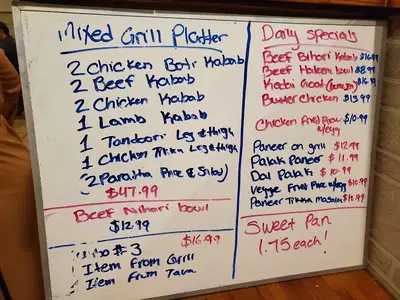 Mixed Grill Platter
2 Chicken Boti Kabab
2 Beef Kabab
2 Chicken Kabab
1 Lamb Kabab
1 Tandoori Leg & thigh
1 Chicken Tikka Leg & thigh
2 Paratha Rice & Salad)
$47.99
Beef Nihari bowl
$12.99
#3 $16.99
1 Item from Grill
1 Item From Tava
Daily Specials
Beef Bihari Kabab $16.99
Beef Haleem bowl $8.99
Kadai Goat $16.99
Butter Chicken $13.99
Chicken Fried Rice $10.99
w/egg
Paneer on grill $12.99
Palak Paneer $11.99
Dal Palak $10.99
Veggie Fried Rice w/egg $10.99
Paneer Tikka Masala $12.99
Sweet Pan
1.75 each!